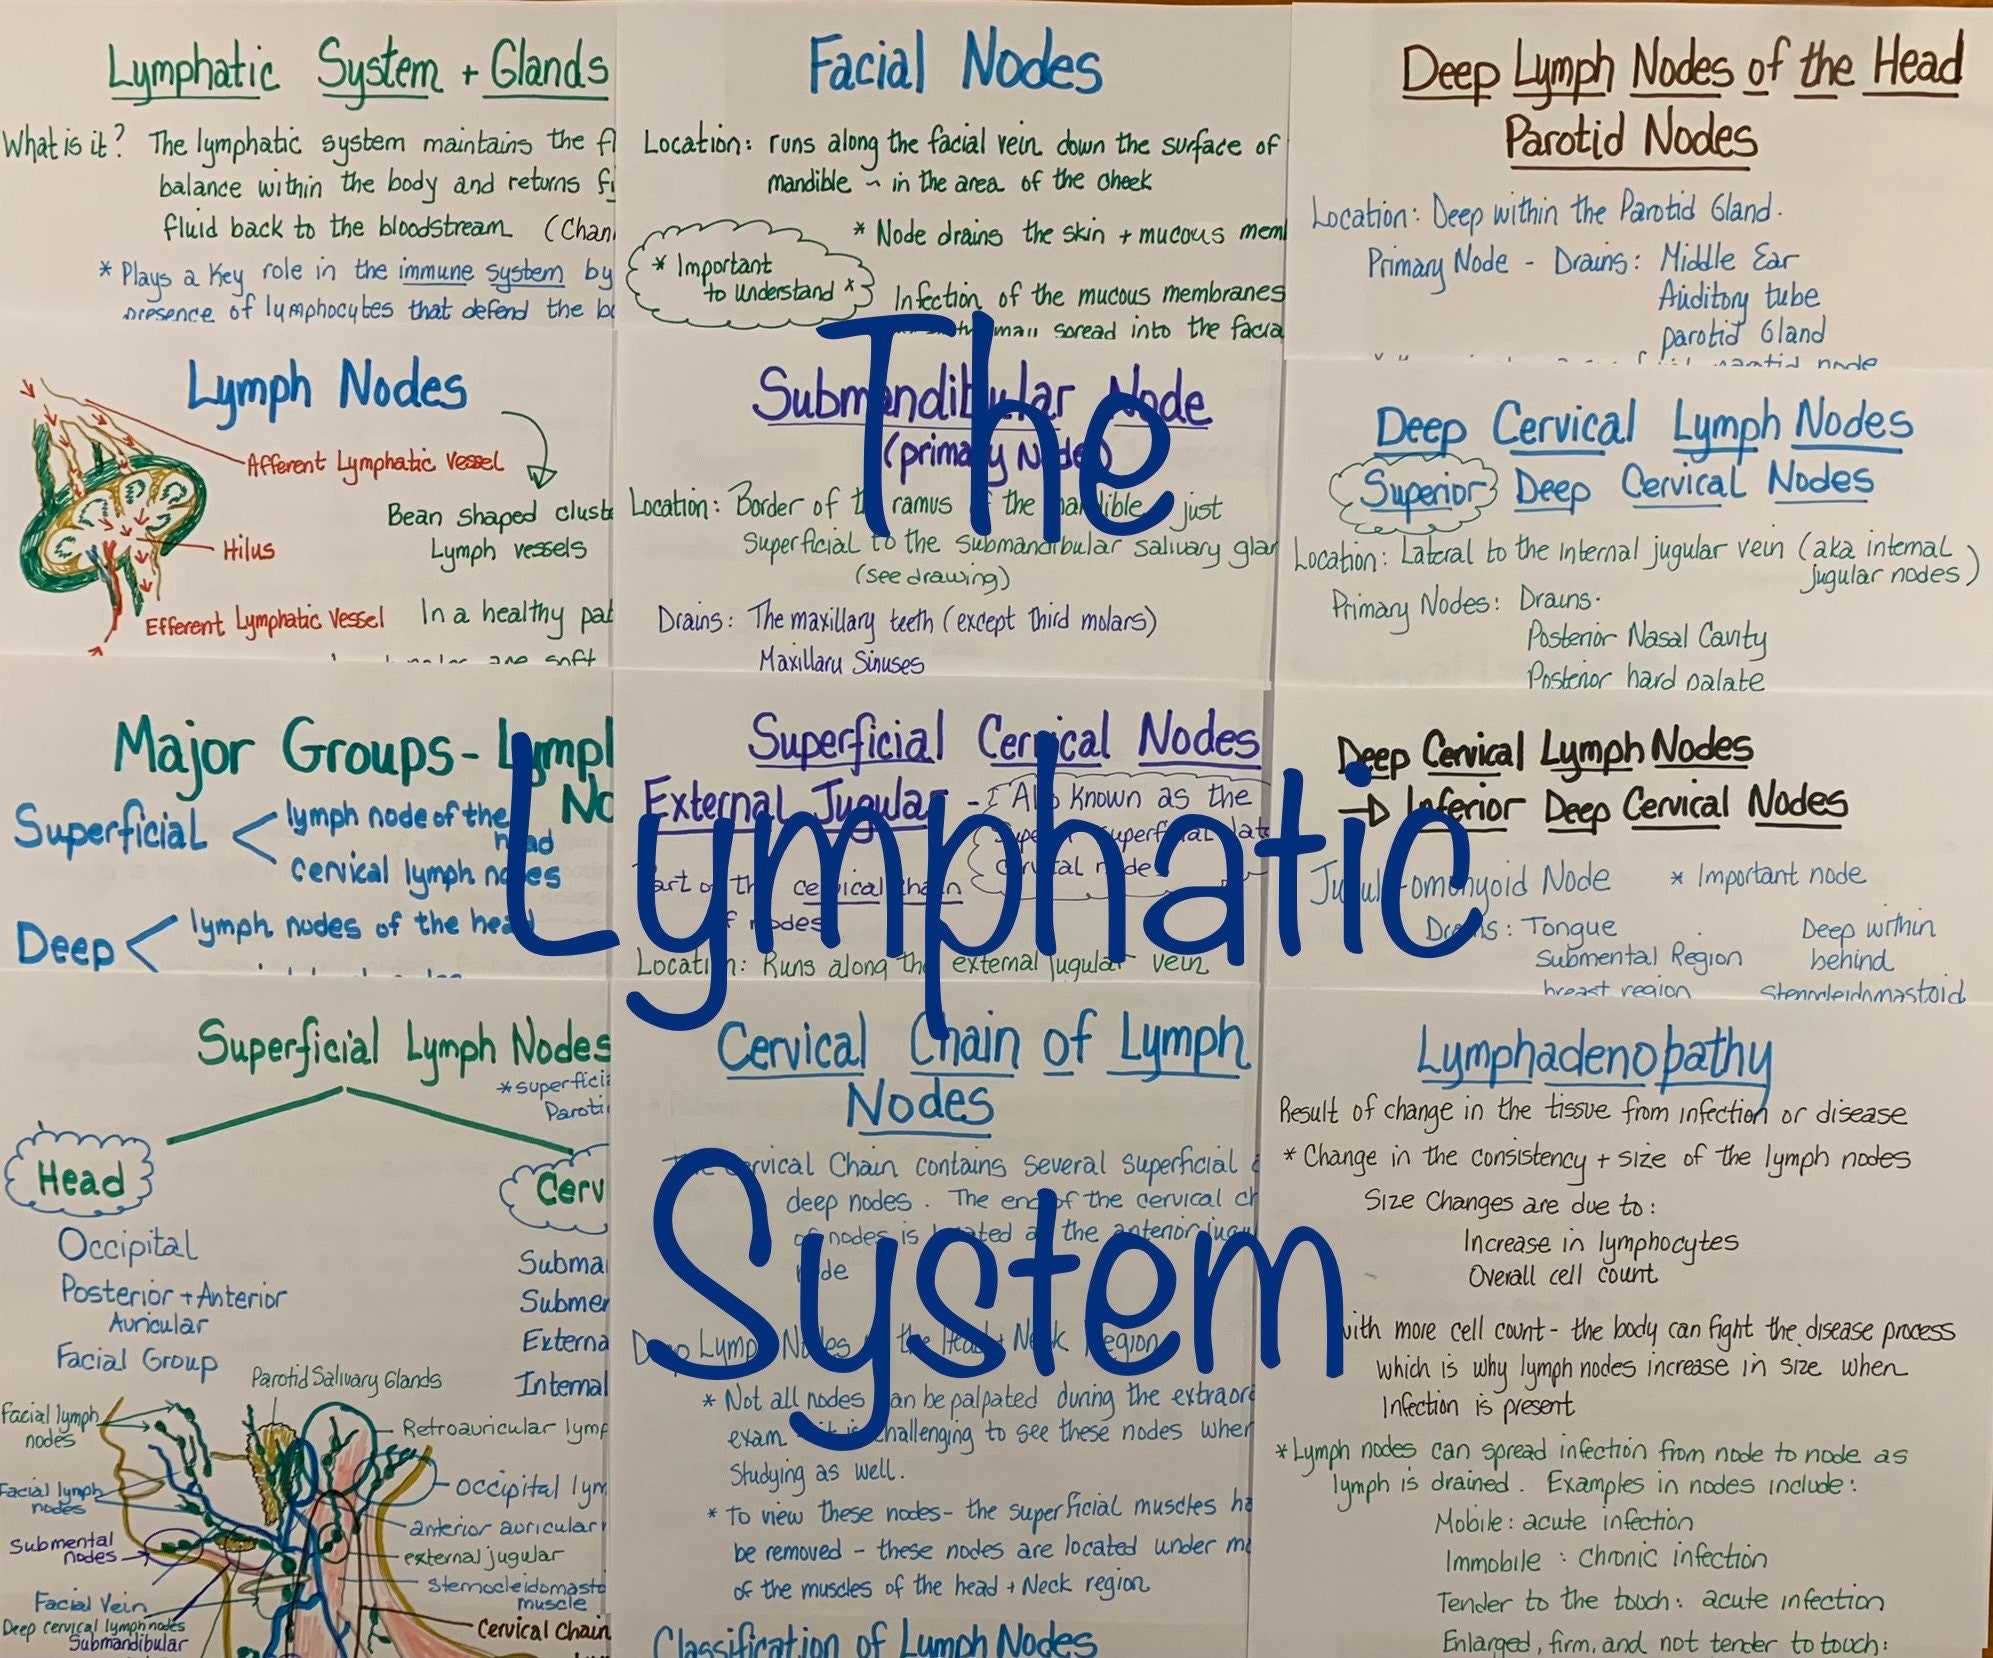 The
Lymphatic
System
Lymphatic System + Glands
What is it? The lymphatic system maintains the fl
balance within the body and returns fi
fluid back to the bloodstream (Chan
* Plays a key role in the immune system by
presence of lymphocytes that defend the bo
Lymph Nodes
Afferent Lymphatic Vessel
Bean shaped cluste
Lymph vessels
Hilus
Efferent Lymphatic Vessel
In a healthy pat
are soft
Major Groups - Lymph
No
Superficial < lymph node of the
head
cervical lymph nodes
Deep < lymph nodes of the head
Superficial Lymph Nodes
*superficia
Paroti
Head
Cerv
Occipital
Posterior + Anterior
Auricular
Facial Group
Subma
Submen
Externa
Internal
Parotid Salivary Glands
Facial lymph
nodes
Retroauricular lymp
Facial lymph
nodes
occipital lym
Submental
nodes
anterior auricular
external jugular
Sternocleidomasto
muscle
Facial Vein
Deep cervical lymph nodes
Submandibular
Cervical Chain
Facial Nodes
Location: runs along the facial vein down the surface of
mandible ~ in the area of the cheek
* Node drains the skin + mucous mem
* Important
to understand *
Infection of the mucous membranes
may spread into the facia
Submandibular Node
(primary Node)
Location: Border of the ramus of the mandible just
Superficial to the submandibular salivary glan
(see drawing)
Drains: The maxillary teeth (except third molars)
Maxillary Sinuses
Superficial Cervical Nodes
External Jugular - Also Known as the
superficial late
nodes
Part of the cervical chain
of nodes
Location: Runs along the external jugular vein
Cervical Chain of Lymph
Nodes
The Cervical Chain contains several superficial
deep nodes. The end of the cervical ch
of nodes is located at the anterior jugu
node
Deep Lymph Nodes of the Head + Neck Region
* Not all nodes can be palpated during the extraor
exam it is challenging to see these nodes when
studying as well.
* To view these nodes - the superficial muscles ha
be removed - these nodes are located under mo
of the muscles of the head + Neck region
Classification of Lymph Nodes
Deep Lymph Nodes of the Head
Parotid Nodes
Location: Deep within the Parotid Gland.
Primary Node - Drains: Middle Ear
Auditory tube
parotid Gland
parotid node
Deep Cervical Lymph Nodes
Superior Deep Cervical Nodes
Location: Lateral to the internal jugular vein (aka internal
jugular nodes)
Primary Nodes: Drains.
Posterior Nasal Cavity
Posterior hard palate
Deep Cervical Lymph Nodes
→ Inferior Deep Cervical Nodes
Jugulo-omohyoid Node * Important node
Drains: Tongue
Submental Region
breast region
Deep within
behind
Sternocleidomastoid
Lymphadenopathy
Result of change in the tissue from infection or disease
* Change in the consistency + size of the lymph nodes
Size Changes are due to:
Increase in lymphocytes
Overall cell count
with more cell count - the body can fight the disease process
which is why lymph nodes increase in size when
Infection is present
* Lymph nodes can spread infection from node to node as
lymph is drained. Examples in nodes include:
Mobile: acute infection
Immobile: chronic infection
Tender to the touch: acute infection
Enlarged, firm, and not tender to touch: